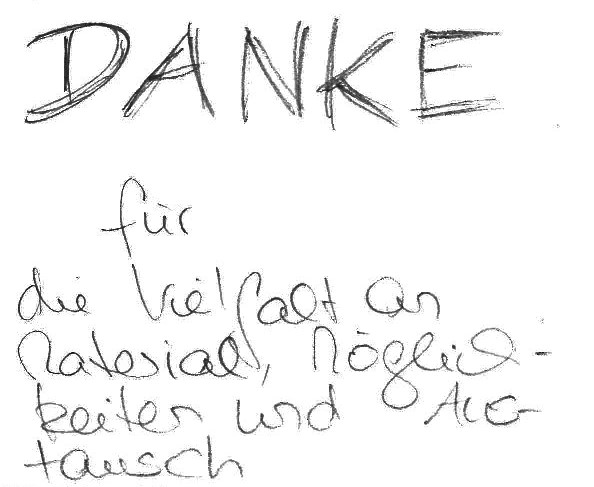 DANKE
für
die Vielfalt an
Material, Möglich-
keiten und Aus-
tausch